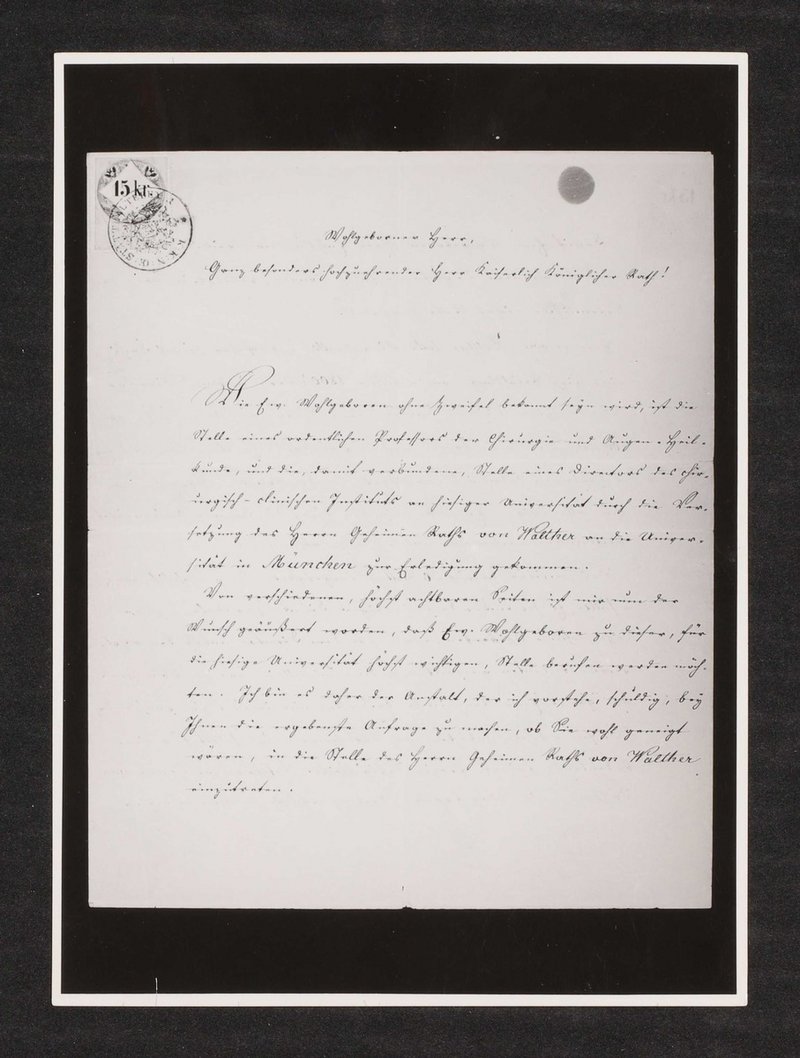 15 kr
Wohlgeborner Herr,
Ganz besonders hochzuehrender Herr Kaiserlich Königlicher Rath!
Wie Ew. Wohlgeboren ohne Zweifel bekannt seyn wird, ist die
Stelle eines ordentlichen Professors der Chirurgie und Augen-Heil-
kunde, und die, damit verbundene, Stelle eines Directors des chir-
urgisch-clinischen Instituts an hiesiger Universität durch die Ver-
setzung des Herrn Geheimen Raths von Walther an die Univer-
sität in München zur Erledigung gekommen.
Von verschiedenen, höchst achtbaren Seiten ist mir nun der
Wunsch geäußert worden, daß Ew. Wohlgeboren zu dieser, für
die hiesige Universität höchst wichtigen, Stelle berufen werden möch-
ten. Ich bin es daher der Anstalt, der ich vorstehe, schuldig, bey
Ihnen die ergebenste Anfrage zu machen, ob Sie wohl geneigt
wären, in die Stelle des Herrn Geheimen Raths von Walther
einzutreten.